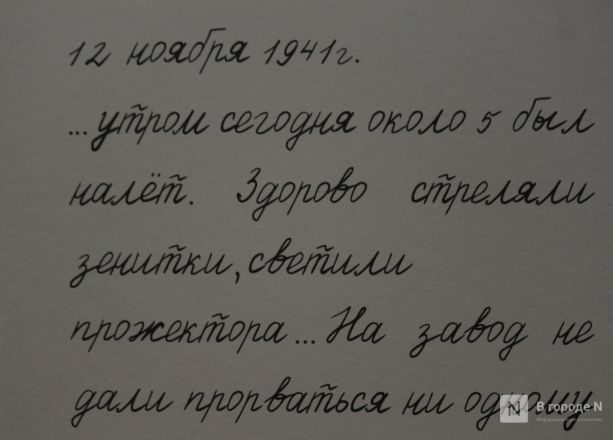 12 ноября 1941г.
...утром сегодня около 5 был
налёт. Здорово стреляли
зенитки, светили
прожектора... На завод не
дали прорваться ни одному
В городе N